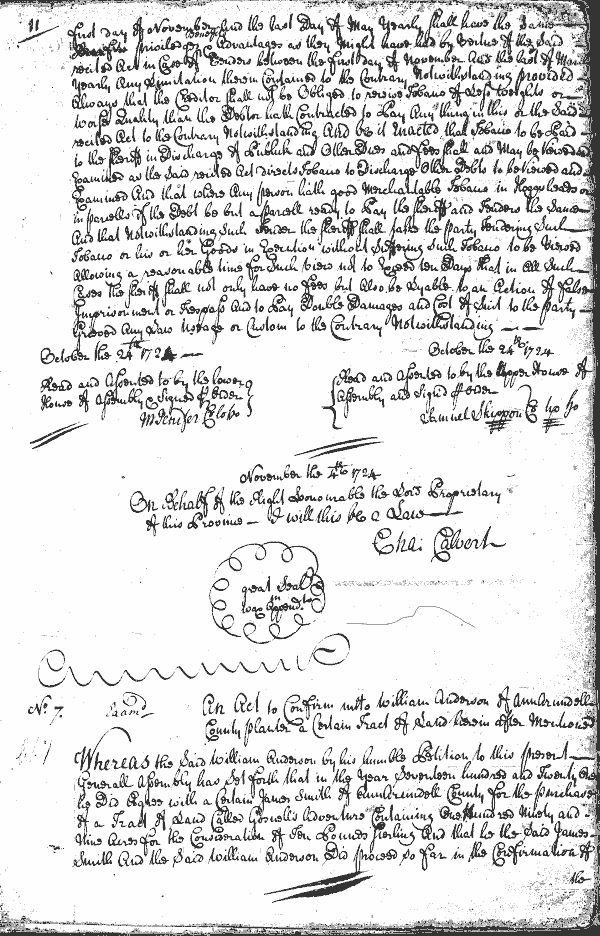 11
first day of November And the last Day of May Yearly shall have the Same
Benefits priviledges & Advantages as they might have had by Vertue of the Said
recited Act in Case of Tenders between the first day of November And the last of May
Yearly Any Limitation therein Contained to the Contrary Notwithstanding provided
Always that the Creditor shall not be Obliged to receive Tobacco of Less weights or
worse Quality than the Debtor hath Contracted to Pay Any thing in this or the Said
recited Act to the Contrary Notwithstanding And be it Enacted that Tobacco to be Paid
to the Sheriff in Discharge of Publick and Other Dues and fees shall and May be Viewed and
Examined as the Said recited Act directs Tobacco to Discharge Other Debts to be Viewed and
Examined And that where Any person hath good Merchantable Tobacco in Hoggsheads or
in parcells if the Debt be but a parcell ready to Pay the Sheriff and Tenders the Same
And that Notwithstanding Such Tender the Sheriff shall take the Party Tendering Such
Tobacco or his or her Goods in Execution without Suffering Such Tobacco to be Viewed
Allowing a reasonable time for Such View not to Exceed ten Days that in All Such
Cases the Sheriff shall not only have no Fees but Also be Lyable to an Action of False
Imprisonment or Trespass And to Pay Double Damages and Cost of Suit to the Party
Grieved Any Law Usage or Custom to the Contrary Notwithstanding
October the 24th 1724
October the 24th 1724
Read and Assented to by the lower
House of Assembly & Signed p Order
M Jenifer Cl lo ho
Read and Assented to by the Upper House of
Assembly and Signd p Order
Samuel Skippon Cl up ho
November the 4th 1724
On Behalf of the Right Honourable the Lord Proprietary
of this Province I will this be a Law
Cha: Calvert
great Seal
was Append.
No. 7.
Exam'd
An Act to Confirm unto William Anderson of Ann Arundell
County planter a Certain Tract of Land herein after Mentioned
Whereas the Said William Anderson by his humble Petition to this present
Generall Assembly has Set forth that in the Year Seventeen hundred and Twenty One
he Did Agree with a Certain James Smith of Ann Arundell County for the purchase
of a Tract of Land Called Gosnells Adventure Containing One Hundred Ninety and
Nine Acres for the Consideration of Ten Pounds Sterling And that he the Said James
Smith And the Said William Anderson Did proceed so far in the Confirmation of
the